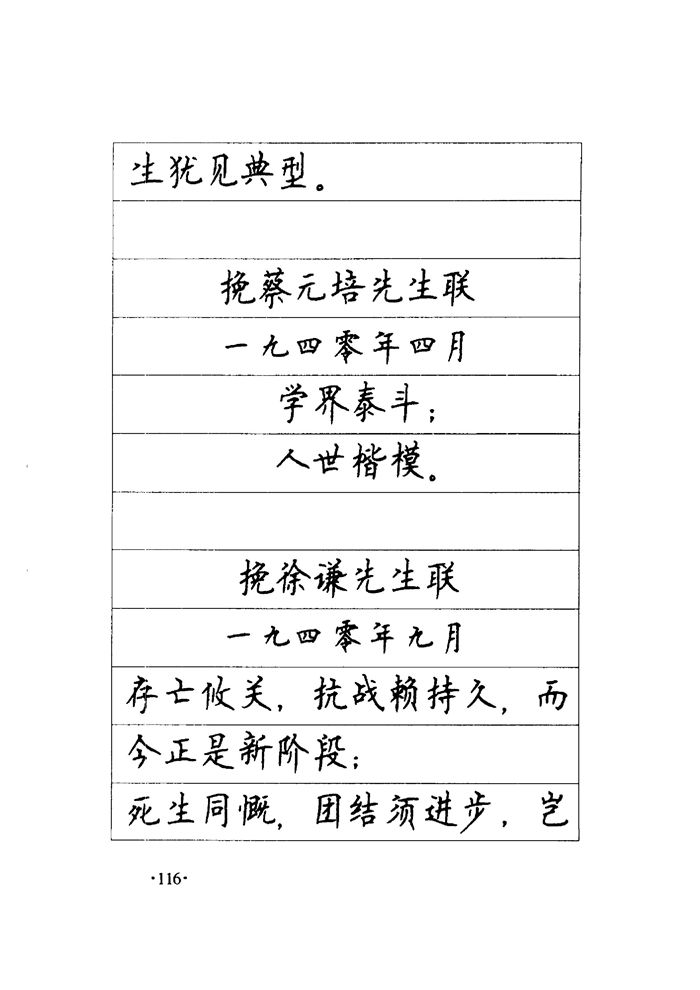 生犹见典型。
挽蔡元培先生联
一九四零年四月
学界泰斗；
人世楷模。
挽徐谦先生联
一九四零年九月
存亡攸关，抗战赖持久，而
今正是新阶段；
死生同慨，团结须进步，岂
·116·